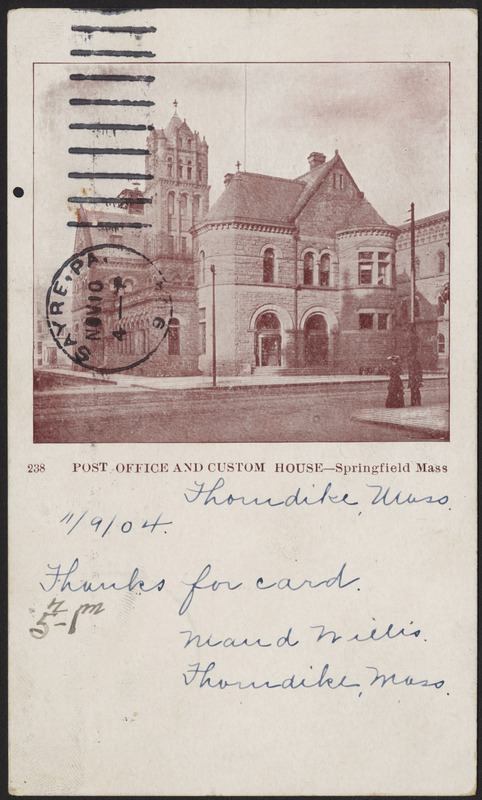 SAYRE, PA.
NOV 10
238 POST OFFICE AND CUSTOM HOUSE—Springfield Mass
Thorndike, Mass.
11/9/04.
Thanks for card.
Maud Willis.
Thorndike, Mass.